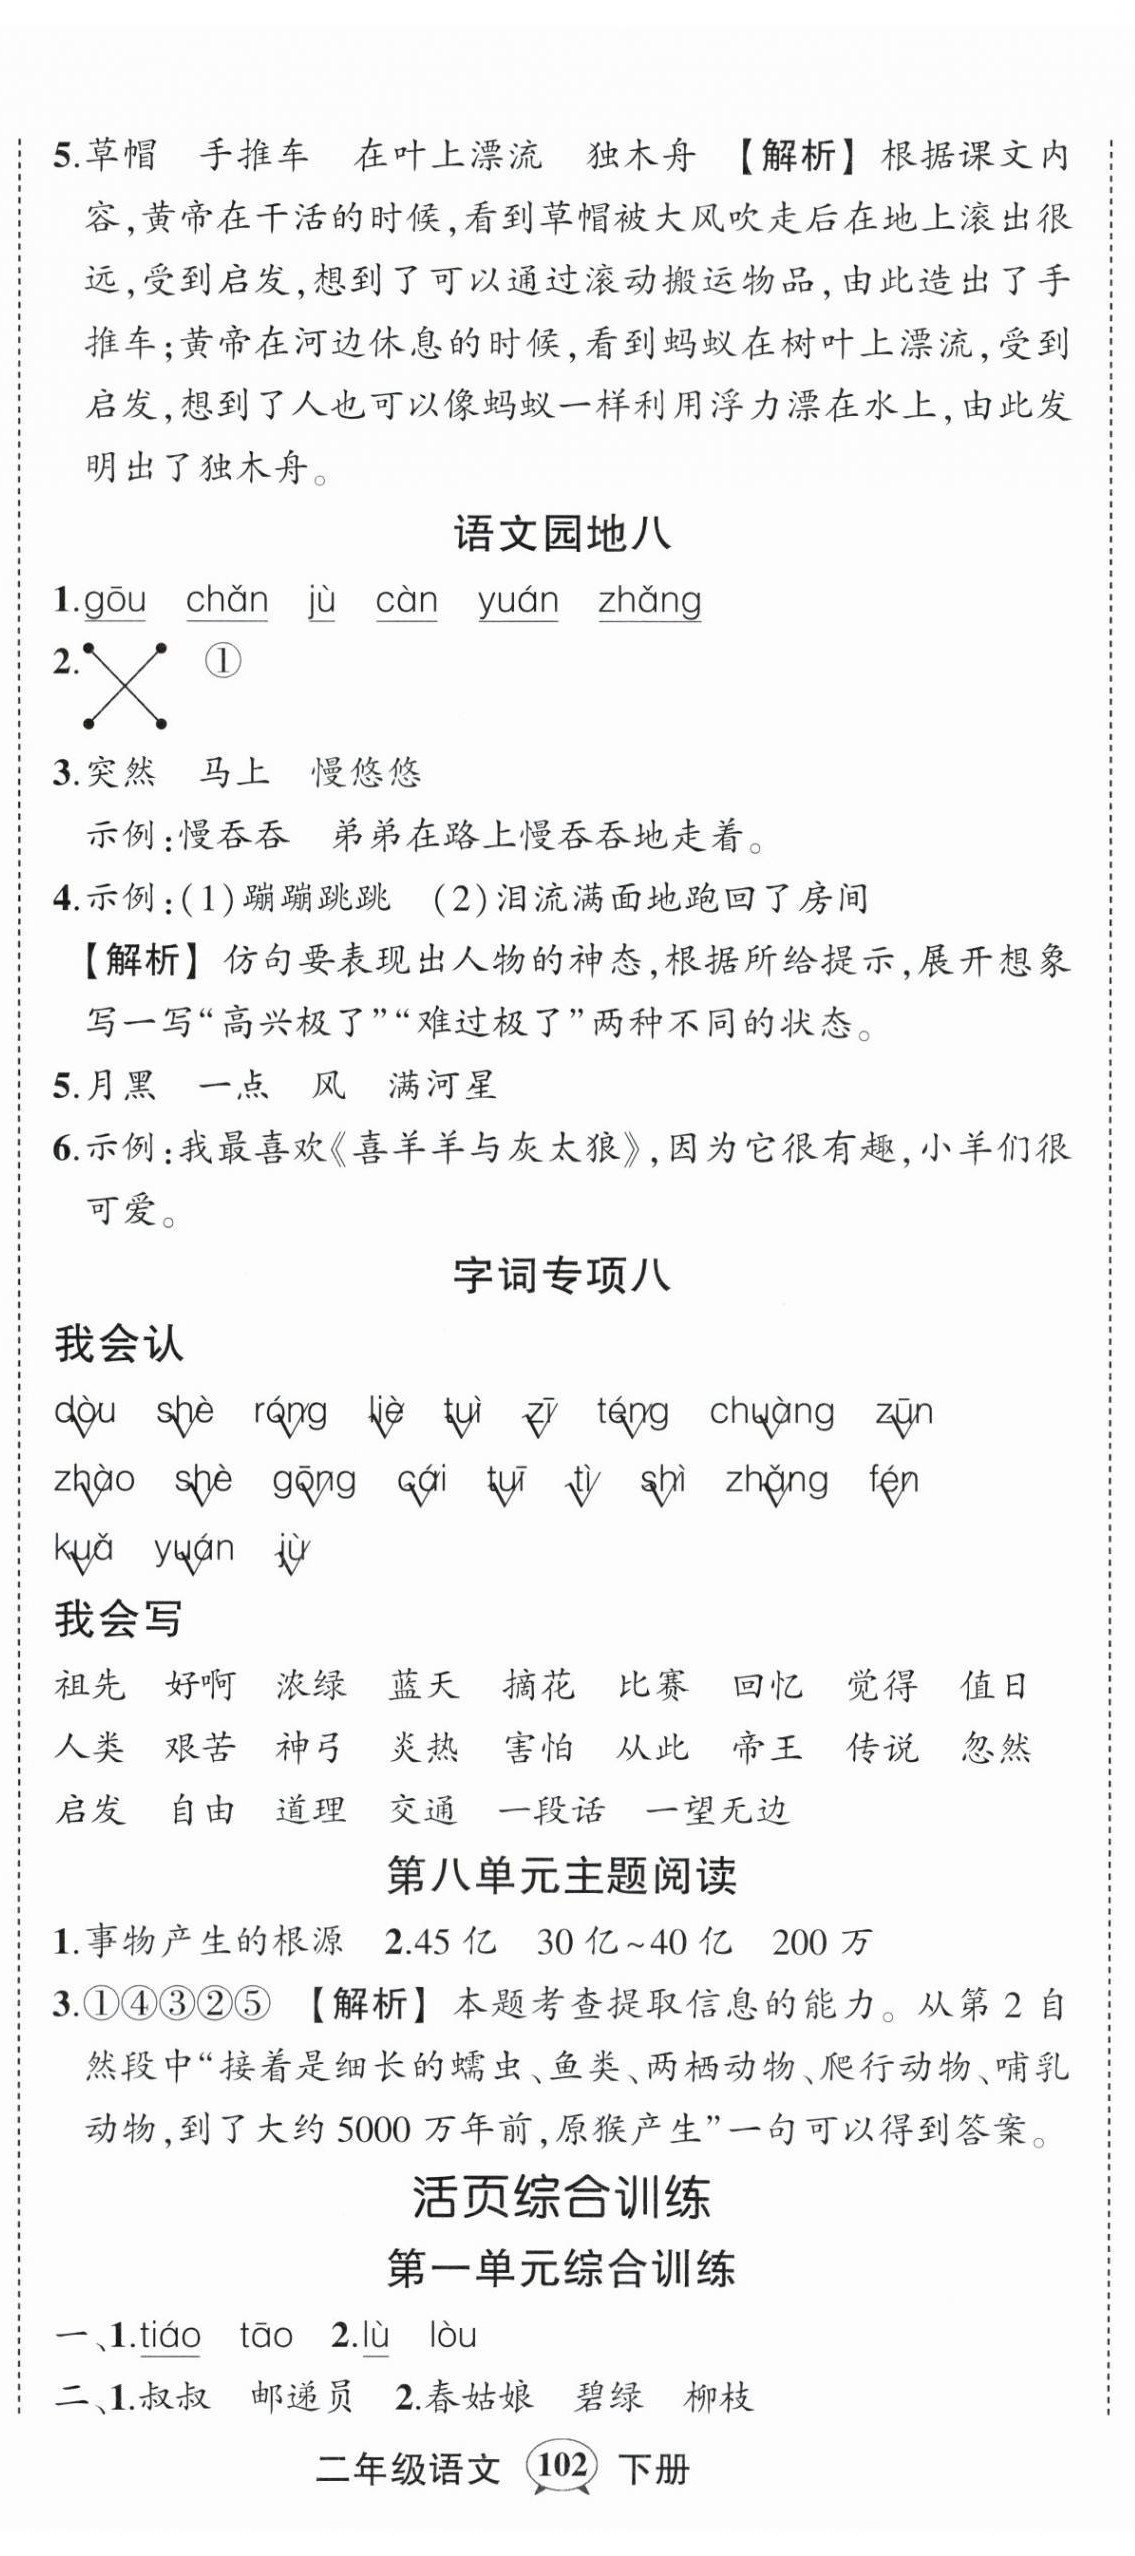 5.草帽 手推车 在叶上漂流 独木舟 【解析】根据课文内
容,黄帝在干活的时候,看到草帽被大风吹走后在地上滚出很
远,受到启发,想到了可以通过滚动搬运物品,由此造出了手
推车;黄帝在河边休息的时候,看到蚂蚁在树叶上漂流,受到
启发,想到了人也可以像蚂蚁一样利用浮力漂在水上,由此发
明出了独木舟。
语文园地八
1.gōu chǎn jù càn yuán zhǎng
2. ①
3.突然 马上 慢悠悠
示例:慢吞吞 弟弟在路上慢吞吞地走着。
4.示例:(1)蹦蹦跳跳 (2)泪流满面地跑回了房间
【解析】仿句要表现出人物的神态,根据所给提示,展开想象
写一写“高兴极了”“难过极了”两种不同的状态。
5.月黑 一点 风 满河星
6.示例:我最喜欢《喜羊羊与灰太狼》,因为它很有趣,小羊们很
可爱。
字词专项八
我会认
dòu shè róng liè tuì zī téng chuàng zūn
zhào shè gōng cái tuī tì shì zhǎng fén
kuǎ yuán jù
我会写
祖先 好啊 浓绿 蓝天 摘花 比赛 回忆 觉得 值日
人类 艰苦 神弓 炎热 害怕 从此 帝王 传说 忽然
启发 自由 道理 交通 一段话 一望无边
第八单元主题阅读
1.事物产生的根源 2.45亿 30亿~40亿 200万
3.①④③②⑤ 【解析】本题考查提取信息的能力。从第2自
然段中“接着是细长的蠕虫、鱼类、两栖动物、爬行动物、哺乳
动物,到了大约5000万年前,原猴产生”一句可以得到答案。
活页综合训练
第一单元综合训练
一、1.tiáo tāo 2.lù lòu
二、1.叔叔 邮递员 2.春姑娘 碧绿 柳枝
二年级语文 102 下册